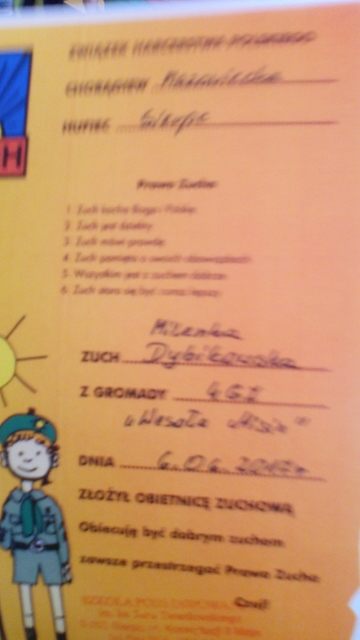 ZWIĄZEK HARCERSTWA POLSKIEGO
CHORĄGIEW Mazowiecka
HUFIEC Sierpc
H
Prawo Zucha:
1. Zuch kocha Boga i Polskę.
2. Zuch jest dzielny.
3. Zuch mówi prawdę.
4. Zuch pamięta o swoich obowiązkach.
5. Wszystkim jest z zuchem dobrze.
6. Zuch stara się być coraz lepszy.
Milenka
ZUCH Dybikowska
Z GROMADY 4 GZ
"Wesołe Misie"
DNIA 6.06.
ZŁOŻYŁ OBIETNICĘ ZUCHOWĄ
Obiecuję być dobrym zuchem
zawsze przestrzegać Prawa Zucha
Czuj!
SZKOŁA PODSTAWOWA